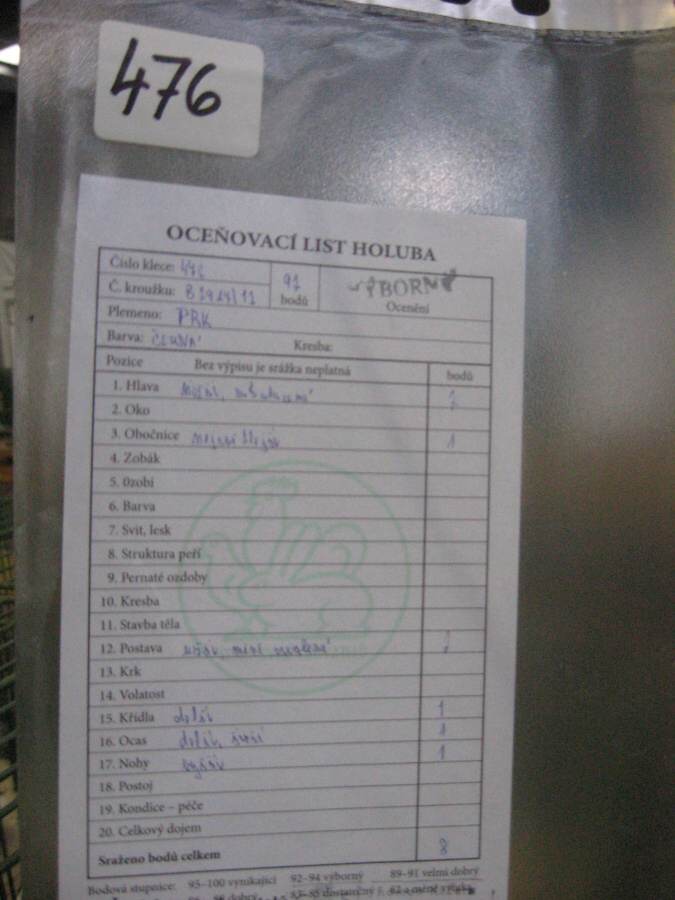 476
OCEŇOVACÍ LIST HOLUBA
Číslo klece: 476
92 bodů
VÝBORNÝ
Ocenění
Č. kroužku:
Plemeno: PBK
Barva:
Kresba:
Pozice Bez výpisu je srážka neplatná bodů
1. Hlava 2
2. Oko
3. Obočnice 1
4. Zobák
5. Ozobí
6. Barva
7. Svit, lesk
8. Struktura peří
9. Pernaté ozdoby
10. Kresba
11. Stavba těla
12. Postava 2
13. Krk
14. Volatost
15. Křídla delší 1
16. Ocas delší, širší 1
17. Nohy 1
18. Postoj
19. Kondice – péče
20. Celkový dojem
Sraženo bodů celkem 8
Bodová stupnice: 95–100 vynikající 92–94 výborný 89–91 velmi dobrý
dobrý dostatečný a méně